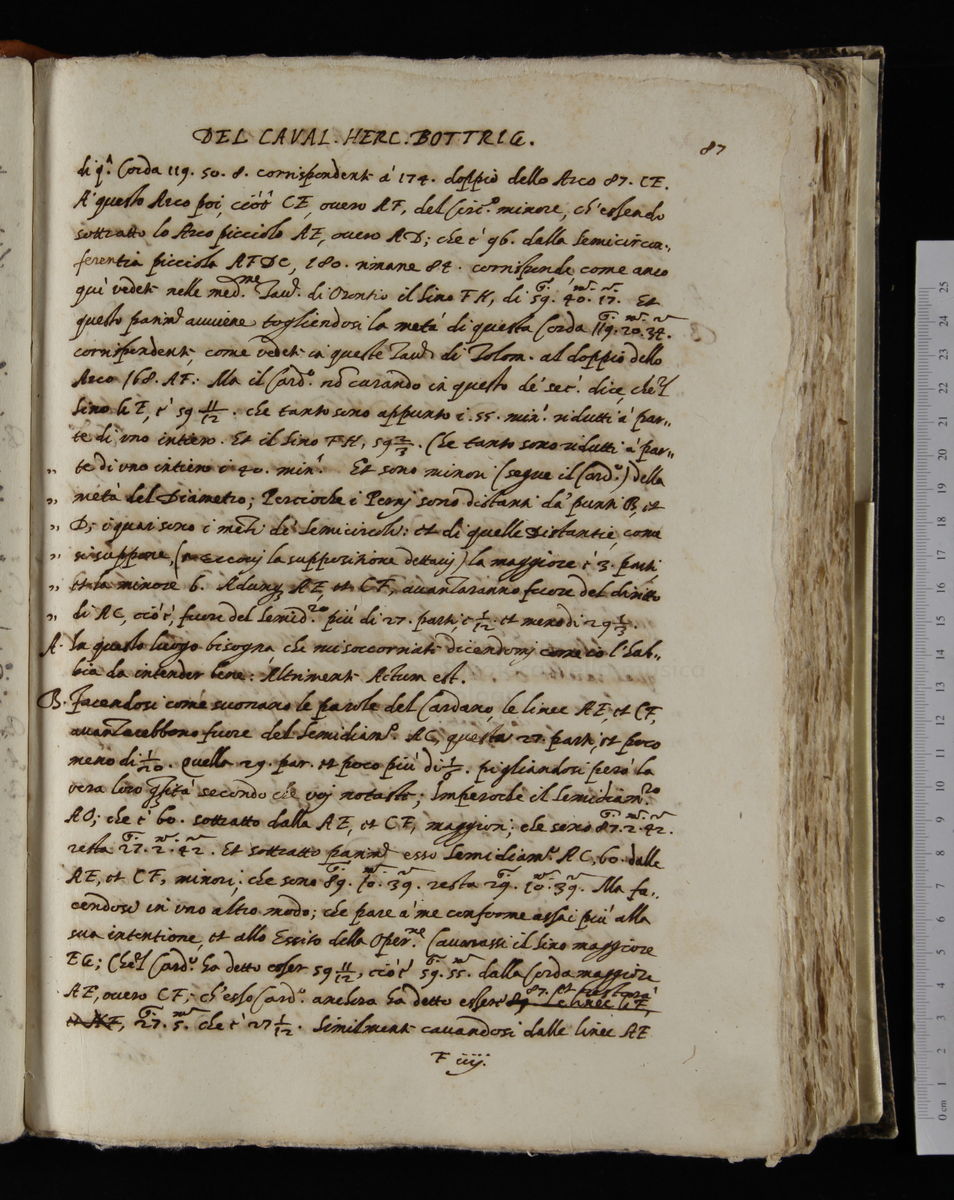 DEL CAVAL. HERC. BOTTRIG.
87
di q.ª Corda 119. 50. 8. corrispondente à 174. doppio dello Arco 87. CE.
A' questo Arco poi, cioè CE, overo AF, del Circ.º minore, ch'essendo
sottratto lo Arco picciolo AE, overo AD; che è 96. dalla Semicircon-
ferentia picciola AFDC, 180. rimane 84. corrisponde come anco
quì vedete nelle med.me Tav. di Orontio il Sino FK, di 59. 40. 17. Et
questo parim.te avviene togliendosi la metà di questa Corda 119. 20. 34.
corrispondente, come vedete in queste Tav. di Tolom. al doppio dello
Arco 168. AF: Ma il Card.º nõ curando in questo de' sec.i dice, che'l
Sino GE, è 59 11/12. che tanto sono appunto i 55. min.i ridutti à par-
te di uno intiero. Et il Sino FK, 59 2/3. Che tanto sono ridutti à par-
„ te di uno intiero i 40. min.i Et sono minori (segue il Card.º) della
„ metà del Diametro; Percioche i Perni sono distanti da' punti B, et
„ D; i quai sono i meti de' Semicircoli: et di quelle Distantie, come
„ si suppone, la maggiore è 3. parti
„ et la minore 6. Adunq; AE, et CF, avanzaranno fuore del diritto
„ di AC, cioè, fuore del Semid.ro più di 27. parti, è 1/12. et meno di 29 1/3.
A. In questo luogo bisogna, che mi soccorriate dicendomi come io l'hab-
bia da intender bene: Altrimente Actum est.
B. Facendosi come suonano le parole del Cardano, le linee AE, et CF,
avanzarebbono fuore del Semidiam.º AC, questa 27. parti, et poco
meno di 1/20. Quella 29. par. et poco più di 1/6. pigliandosi però la
vera loro q̃tità secondo che voi notaste; Imperoche il Semidiam.ro
AO; che è 60. sottratto dalla AE, et CF, maggiori: che sono 87. 2. 42.
resta 27. 2. 42. Et sottratto parim.te esso Semidiam.º AC, 60. dalle
AE, et CF, minori: che sono 89. 10. 39. resta 29. 10. 39. Ma fa-
cendosi in uno altro modo; che pare à me conforme assai più alla
sua intentione, et allo Essito della Oper.ne Cavarassi il Sino maggiore
EG; Che'l Card.º ha detto esser 59 11/12, cioè 59. 55. dalla Corda maggiore
AE, overo CF; ch'esso Card.º anchora ha detto essere 87. et restarà
27. 5. che è 27 1/12. Similmente cavandosi dalle linee AE
F iiij.